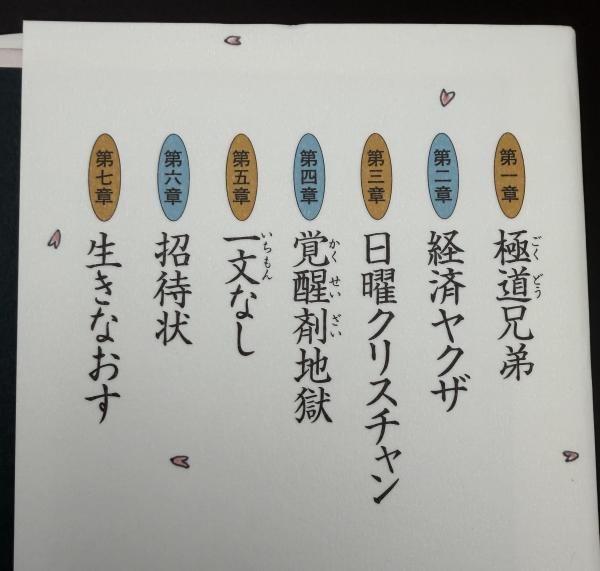 第一章 極道兄弟
第二章 経済ヤクザ
第三章 日曜クリスチャン
第四章 覚醒剤地獄
第五章 一文なし
第六章 招待状
第七章 生きなおす